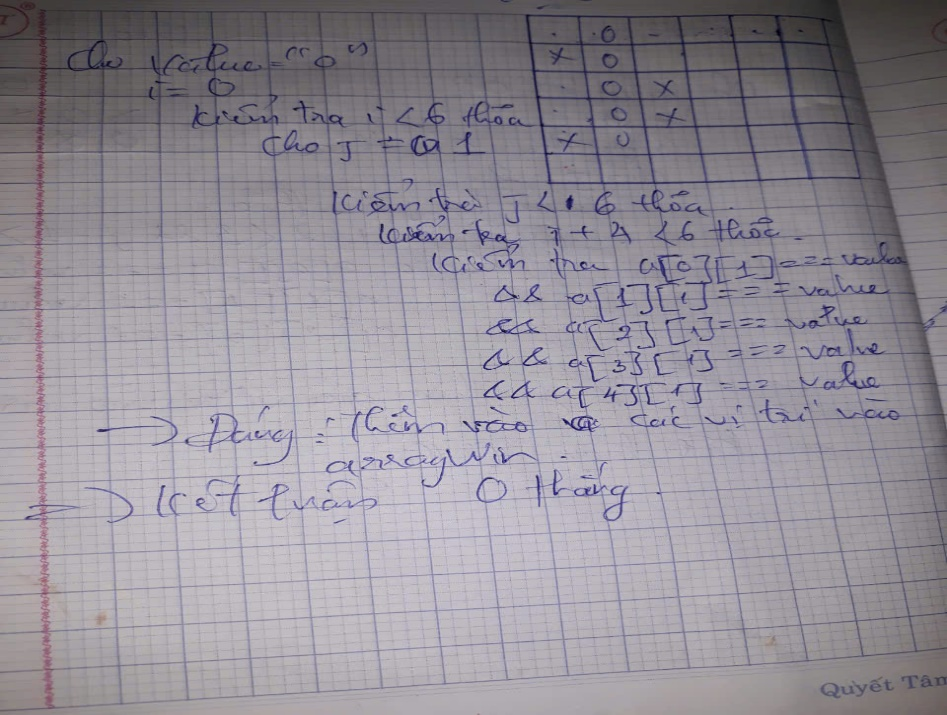 . . O - - . .
Cho Value = "O"
X O
i = 0
. O X
Kiểm tra i < 6 thỏa
. O X
Cho J = 1
X O
Kiểm tra J < 6 thỏa.
Kiểm tra i + 4 < 6 thỏa.
Kiểm tra a[0][1] === value
&& a[1][1] === value
&& a[2][1] === value
&& a[3][1] === value
&& a[4][1] === value
→ Đúng : Thêm vào các vị trí vào
arrayWin.
=> Kết luận O thắng.
Quyết Tâm